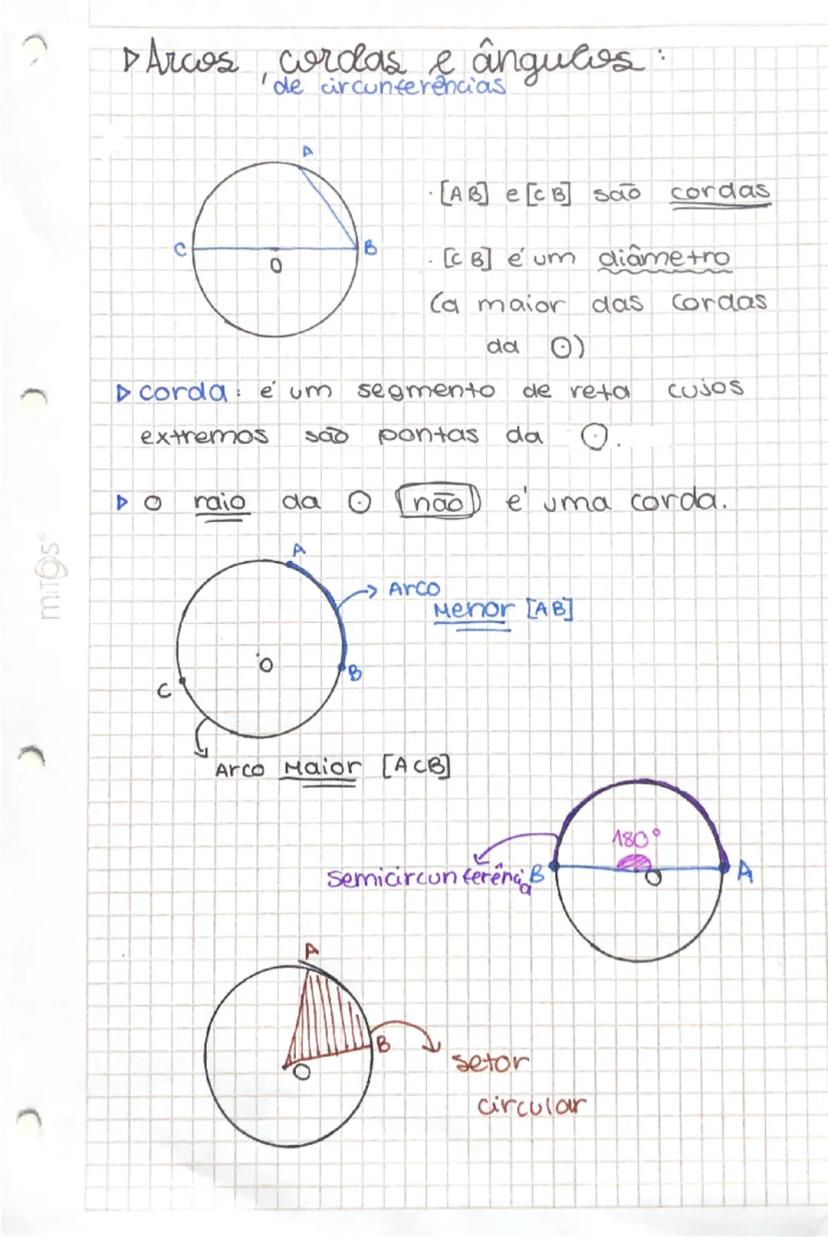 ▷ Arcos, cordas e ângulos:
de circunferências
A
C
B
O
· [AB] e [CB] são cordas
· [CB] é um diâmetro
(a maior das cordas
da ⊙)
▷ corda: é um segmento de reta cujos
extremos são pontas da ⊙.
▷ O raio da ⊙ não é uma corda.
A
→ Arco
Menor [AB]
O
B
C
Arco Maior [ACB]
mitos®
180°
semicircunferência
B
O
A
A
B
O
setor
circular